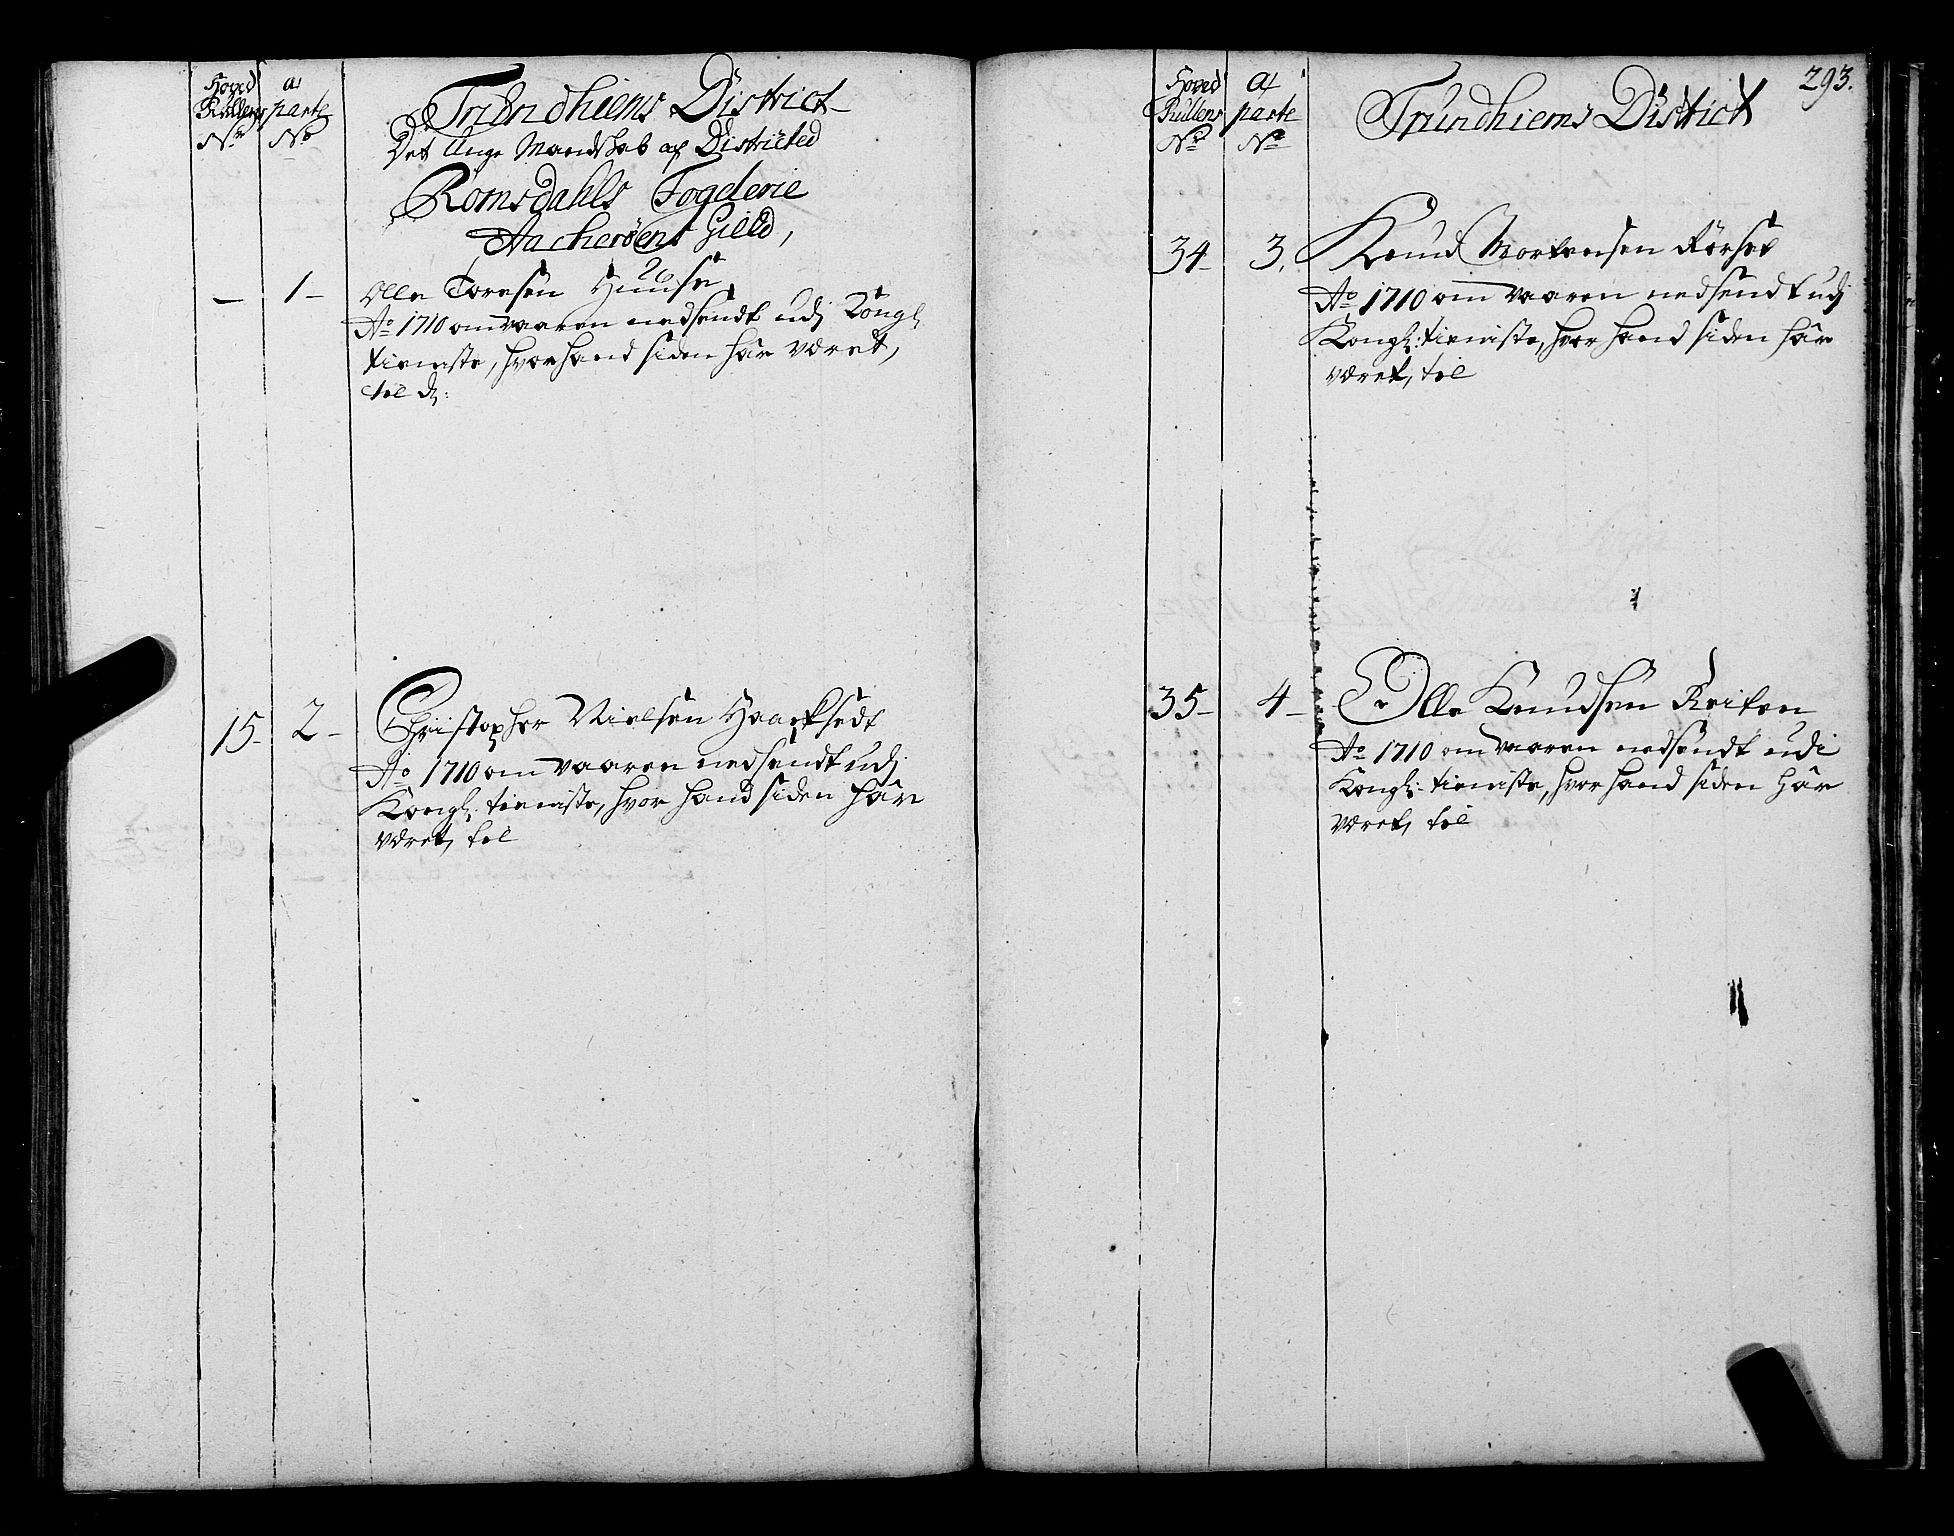 Hoved Rullens No
a parte No
Trundhiems District
Det Unge Mandskab af Districted
Romsdahls Fogderie
Aacheröens Gield,
26
– 1 – Olle Toresen Huuse
Ao 1710 om vaaren nedsendt udj Kongl:
tieniste, hvor hand siden har været,
til d:
15 – 2 – Christopher Nielsen
Ao 1710 om vaaren nedsendt udj
Kongl: tieniste, hvor hand siden har
været, til
293.
Hoved Rullens No
a parte No
Trundhiems District
34 – 3. Knud Mortensen Rörset
Ao 1710 om vaaren nedsendt udj
Kongl: tieniste, hvor hand siden har
været, til
35 – 4 – Olle Knudsen Reiten
Ao 1710 om vaaren nedsendt udi
Kongl: tieniste, hvor hand siden har
været, til